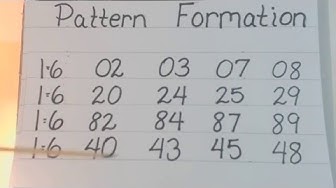 Pattern Formation
1-6 02 03 07 08
1=6 20 24 25 29
1=6 82 84 87 89
1=6 40 43 45 48